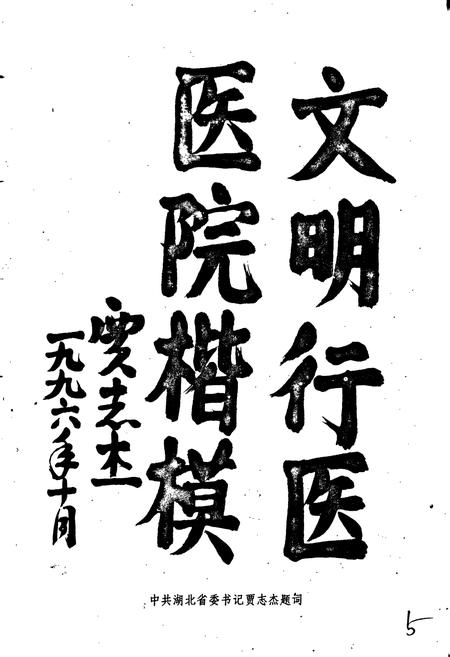 文明行医
医院楷模
贾志杰
一九九六年十月
中共湖北省委书记贾志杰题词
5